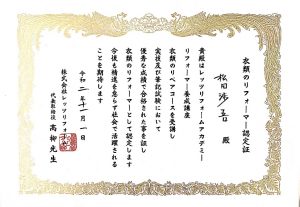 衣類のリフォーマー認定証
殿
貴殿はレッツリフォームアカデミー
リフォーマー養成講座
衣類のリペアコースを受講し
実技及び筆記試験において
優秀な成績で合格された事を証し
衣類のリフォーマーとして認定します
今後も精進を怠らず社会で活躍される
ことを期待します
令和二年十一月一日
株式会社レッツリフォーム
代表取締役 高柳先生